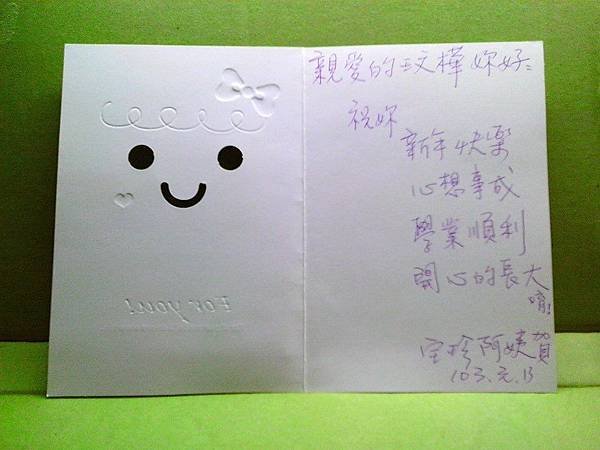 For you!
親愛的玟樺妳好:
祝妳
新年快樂
心想事成
學業順利
開心的長大
唷!
宝珍阿姨賀
103.元.13